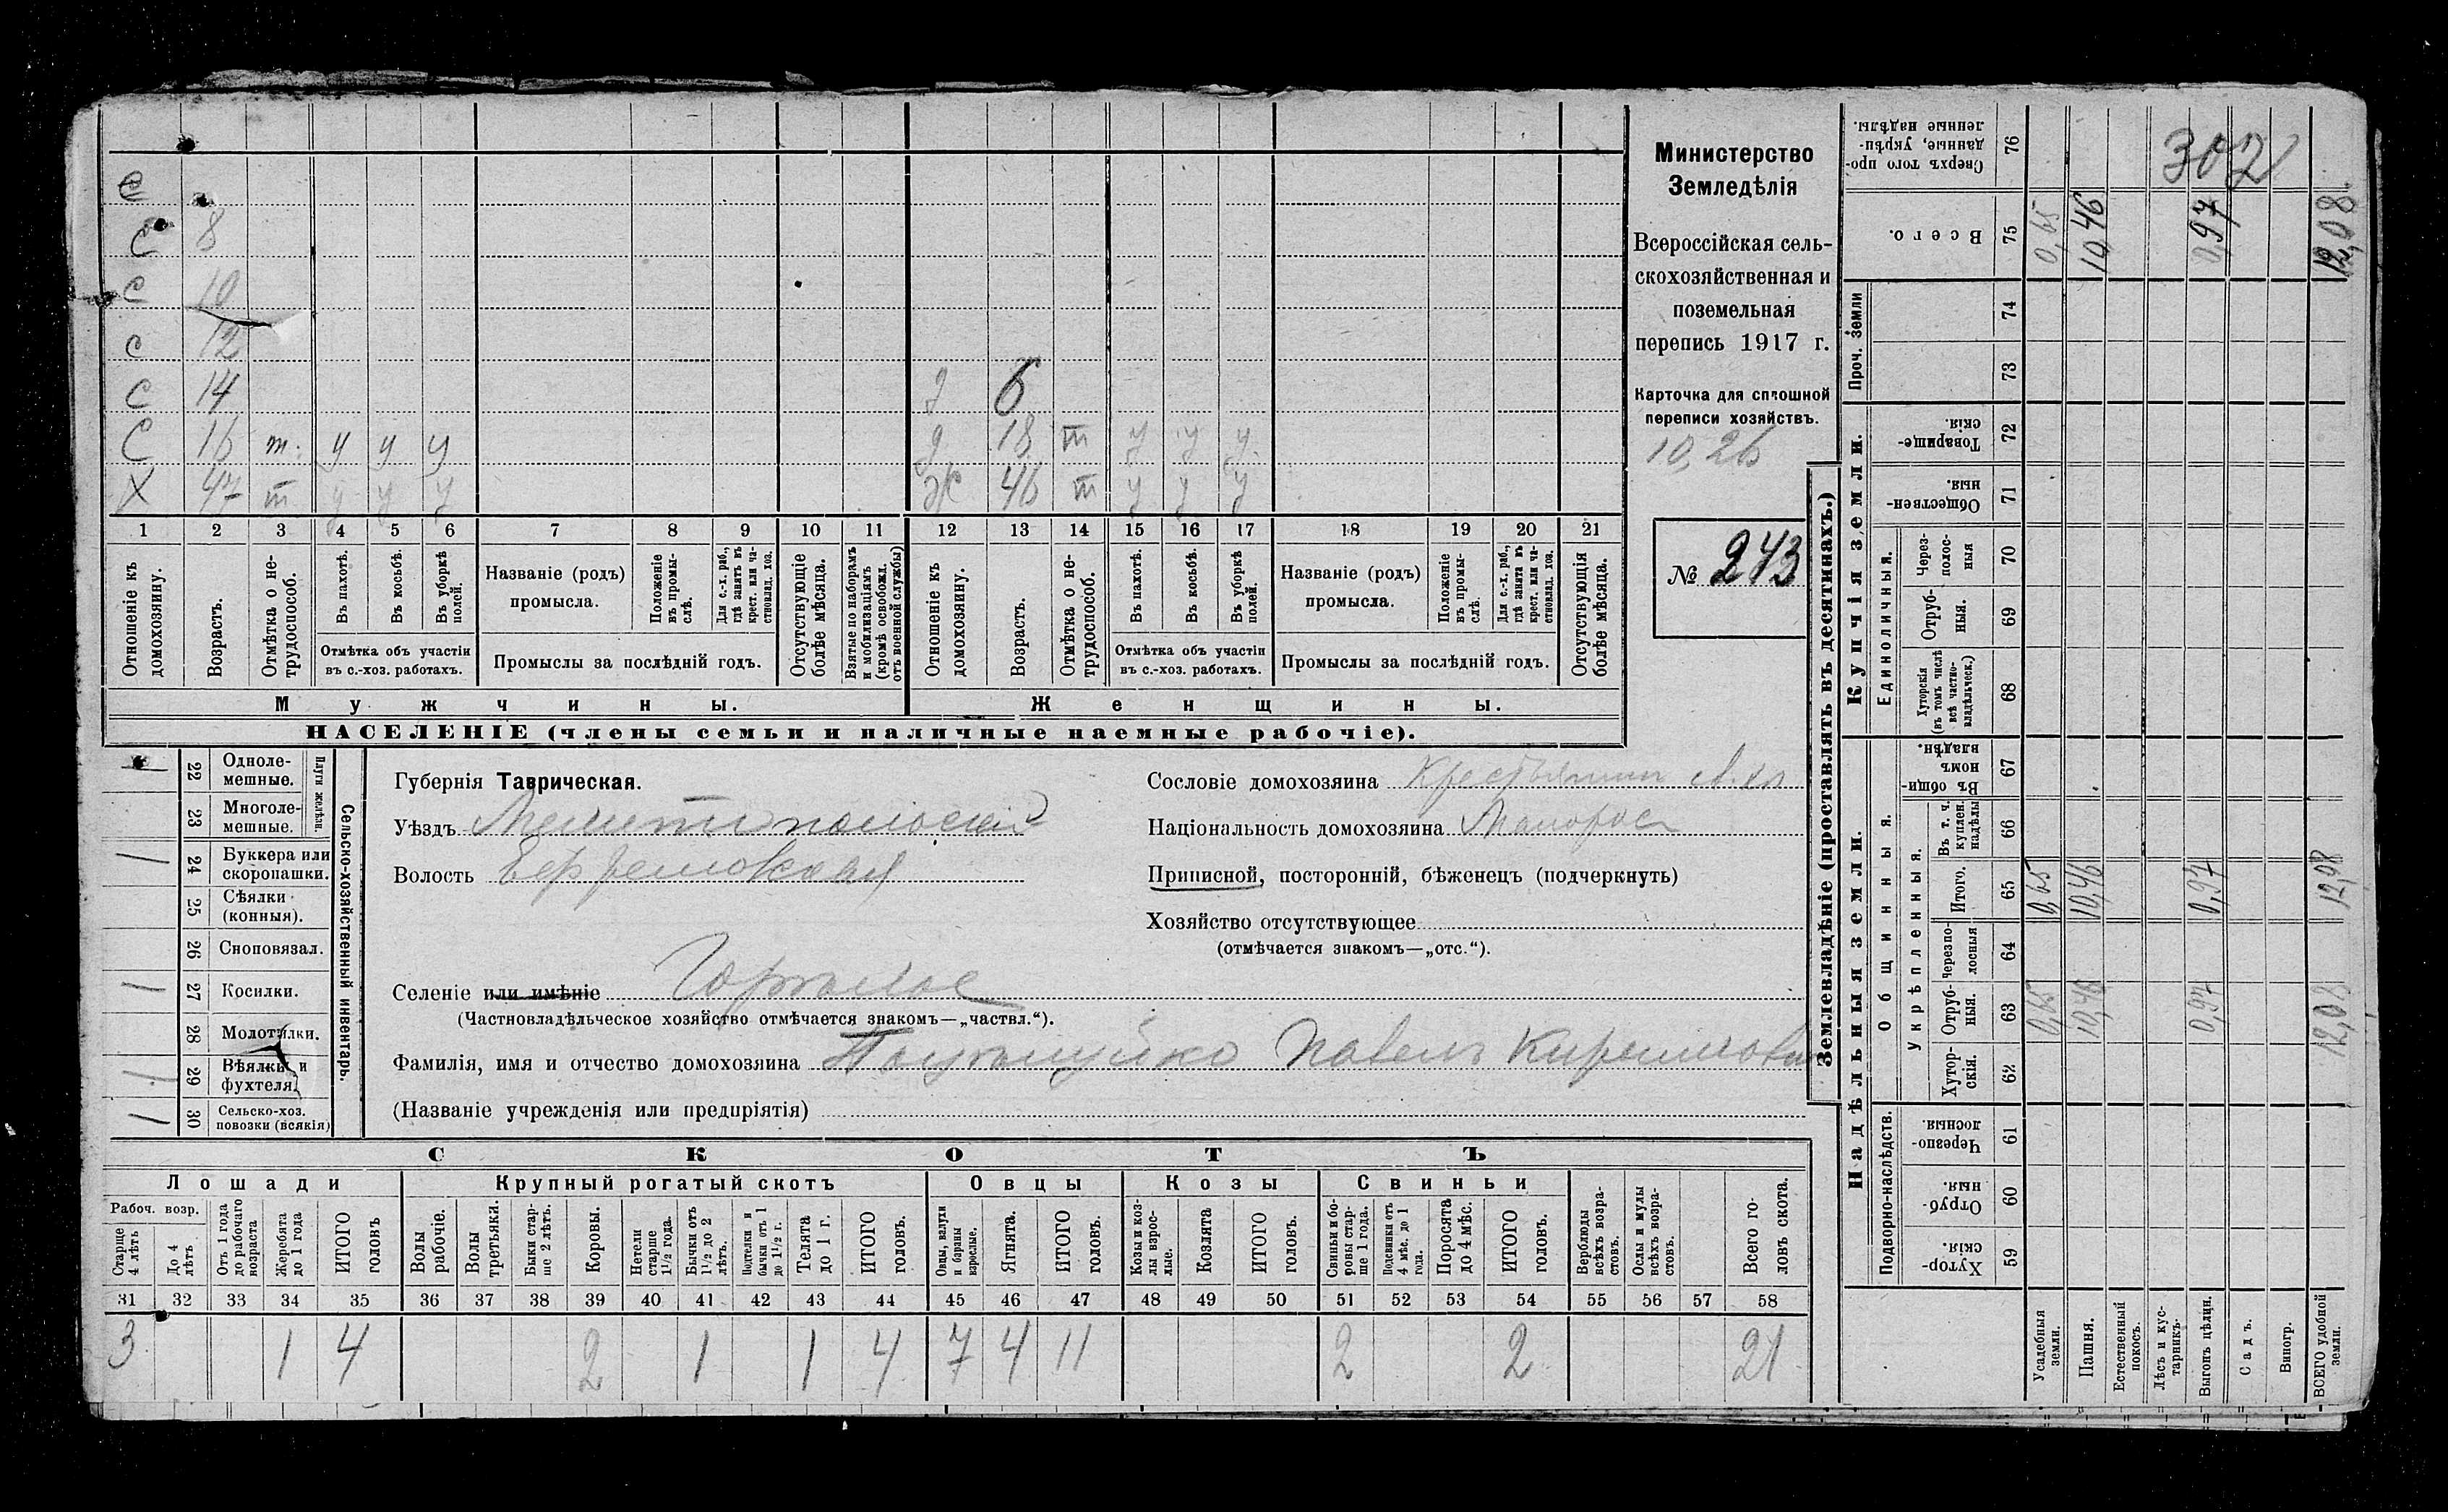 С
С 8
С 10
С 12
С 14 д 6
С 16 т. у у у д 18 т у у у
Х 47 т у у у ж 46 т у у у
1 2 3 4 5 6 7 8 9 10 11 12 13 14 15 16 17 18 19 20 21
Отношеніе къ домохозяину.
Возрастъ.
Отмѣтка о не-трудоспособ.
Въ пахотѣ.
Въ косьбѣ.
Въ уборкѣ полей.
Отмѣтка объ участіи въ с.-хоз. работахъ.
Названіе (родъ) промысла.
Положеніе въ промы-слѣ.
Для с.-х. раб., гдѣ занятъ въ крест. или ча-стновлад. хоз.
Промыслы за послѣдній годъ.
Отсутствующіе болѣе мѣсяца.
Взятые по наборамъ и мобилизаціямъ (кромѣ освобожд. отъ военной службы)
Отношеніе къ домохозяину.
Возрастъ.
Отмѣтка о не-трудоспособ.
Въ пахотѣ.
Въ косьбѣ.
Въ уборкѣ полей.
Отмѣтка объ участіи въ с.-хоз. работахъ.
Названіе (родъ) промысла.
Положеніе въ промы-слѣ.
Для с.-х. раб., гдѣ занята въ крест. или ча-стновлад. хоз.
Промыслы за послѣдній годъ.
Отсутствующія болѣе мѣсяца.
Мужчины.
Женщины.
НАСЕЛЕНІЕ (члены семьи и наличные наемные рабочіе).
Министерство
Земледѣлія
Всероссійская сель-
скохозяйственная и
поземельная
перепись 1917 г.
Карточка для сплошной
переписи хозяйствъ.
10,26
№ 243
22 Одноле-мешные.
23 Многоле-мешные.
Плуги желѣзн.
24 Буккера или скоропашки.
25 Сѣялки (конныя).
26 Сноповязал.
27 Косилки.
28 Молотилки.
29 Вѣялки и фухтеля.
30 Сельско-хоз. повозки (всякія)
Сельско-хозяйственный инвентарь.
Губернія Таврическая.
Уѣздъ Мелитопольскій
Волость Ефремовская
Селеніе или имѣніе
(Частновладѣльческое хозяйство отмѣчается знакомъ—„частвл.“).
Фамилія, имя и отчество домохозяина Павелъ
(Названіе учрежденія или предпріятія)
Сословіе домохозяина Крестьянин
Національность домохозяина Малорос
Приписной, посторонній, бѣженецъ (подчеркнуть)
Хозяйство отсутствующее
(отмѣчается знакомъ—„отс.“).
СКОТЪ
Лошади Крупный рогатый скотъ Овцы Козы Свиньи
Рабоч. возр.
Старше 4 лѣтъ
До 4 лѣтъ
Отъ 1 года до рабочаго возраста
Жеребята до 1 года
ИТОГО головъ
Волы рабочіе.
Волы третьяки.
Быки стар-ше 2 лѣтъ.
Коровы.
Нетели старше 1½ года.
Бычки отъ 1½ до 2 лѣтъ.
Подтелки и бычки отъ 1 до 1½ г.
Телята до 1 г.
ИТОГО головъ.
Овцы, валухи и бараны взрослые.
Ягнята.
ИТОГО головъ.
Козы и коз-лы взрос-лые.
Козлята
ИТОГО головъ.
Свиньи и бо-ровы стар-ше 1 года.
Подсвинки отъ 4 мѣс. до 1 года.
Поросята до 4 мѣс.
ИТОГО головъ.
Верблюды всѣхъ возра-стовъ.
Ослы и мулы всѣхъ возра-стовъ.
Всего го-ловъ скота.
31 32 33 34 35 36 37 38 39 40 41 42 43 44 45 46 47 48 49 50 51 52 53 54 55 56 57 58
3 1 4 2 1 1 4 7 4 11 2 2 21
Землевладѣніе (проставлять въ десятинахъ.)
Надѣльныя земли.
Купчія земли.
Проч. земли
Подворно-наслѣдств.
Общинныя.
Укрѣпленныя.
Единоличныя.
Сверхъ того про-данные, укрѣп-ленные надѣлы. 76 302
Всего. 75 0,65 10,46 0,97 12,08
74
73
Товарище-скія. 72
Обществен-ныя. 71
Через-полос-ныя 70
Отруб-ныя. 69
Хуторскія (въ томъ числѣ всѣ частно-владѣльческ.) 68
Въ общин-номъ владѣн. 67
Въ т. ч. куплен. надѣлы 66
Итого. 65 0,65 10,46 0,97 12,08
Черезпо-лосныя 64
Отруб-ныя. 63 0,65 10,46 0,97 12,08
Хутор-скія. 62
Черезпо-лосныя. 61
Отруб-ныя. 60
Хутор-скія. 59
Усадебныя земли.
Пашня.
Естественный покосъ.
Лѣсъ и кус-тарникъ.
Выгонъ цѣлин.
Садъ.
Виногр.
ВСЕГО удобной земли.